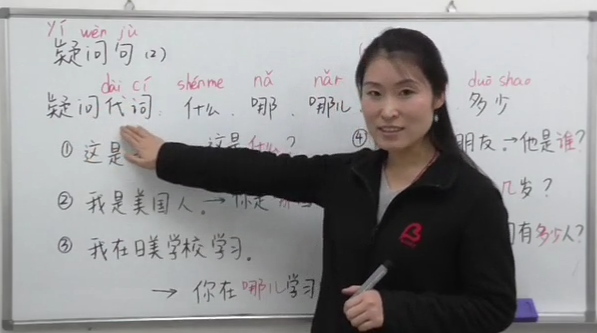 yí wèn jù
疑问句(2)
dài cí shénme nǎ nǎr duō shao
疑问代词: 什么、哪、哪儿 、多少
① 这是 这是什么?
② 我是美国人。→ 你是
③ 我在日美学校学习。
→ 你在哪儿学习
④ 朋友。→他是谁?
几岁?
有多少人?